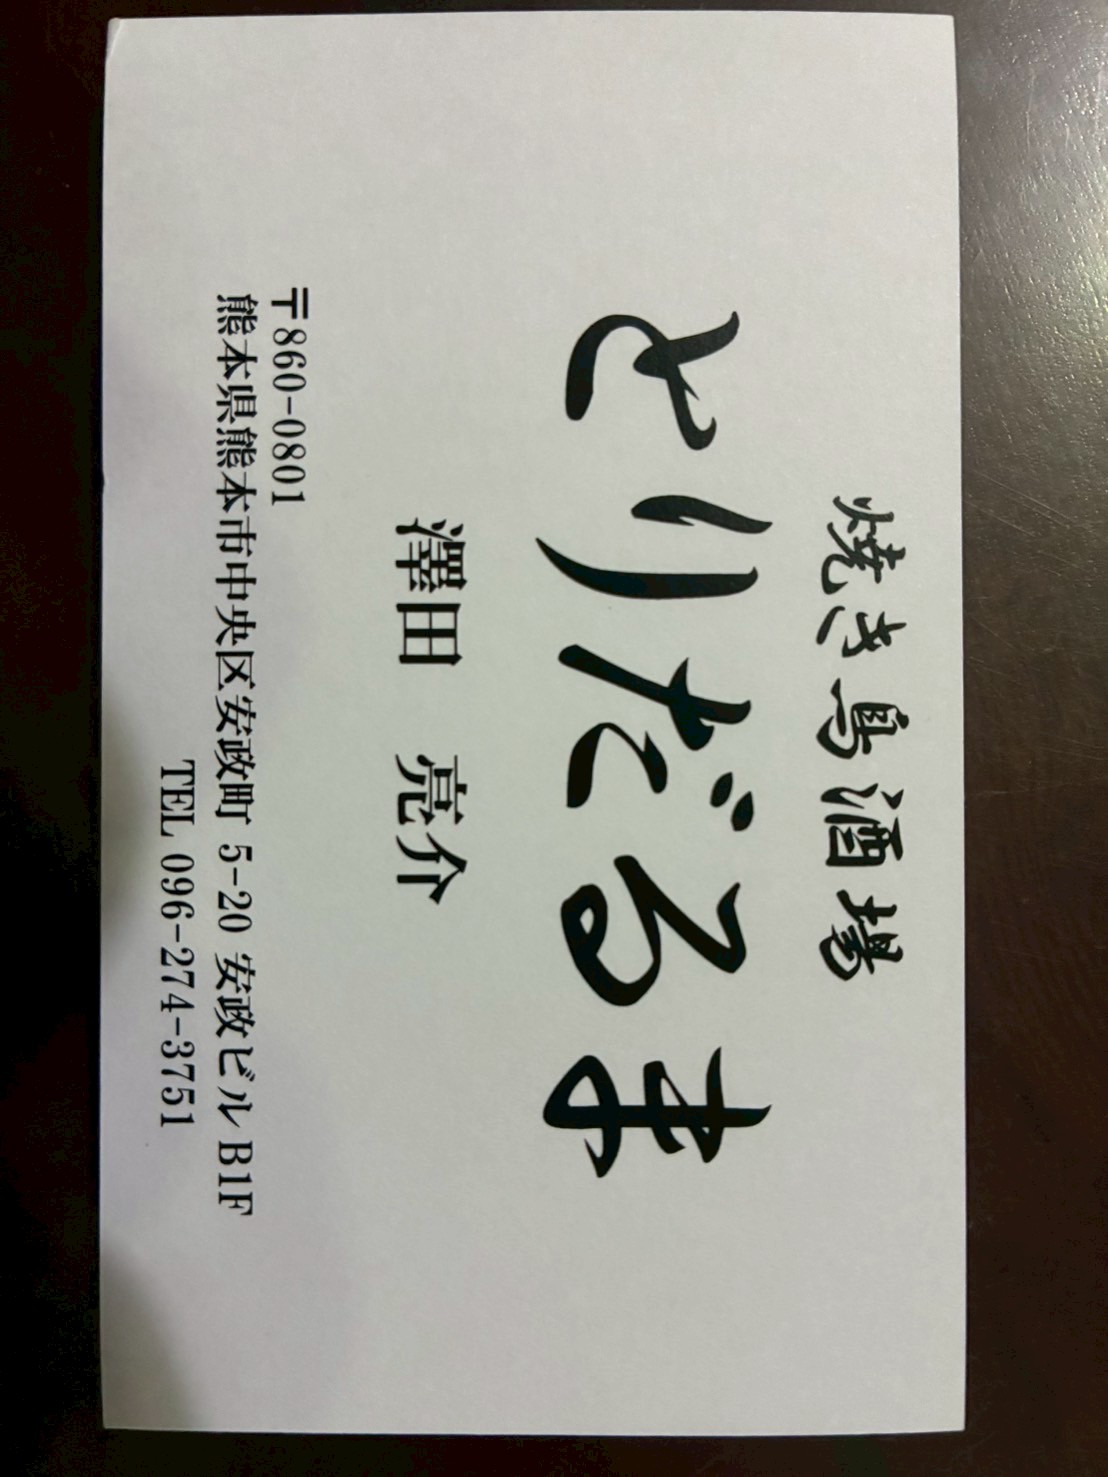 焼き鳥酒場
とりだるま
澤田 亮介
〒860-0801
熊本県熊本市中央区安政町 5-20 安政ビル B1F
TEL 096-274-3751